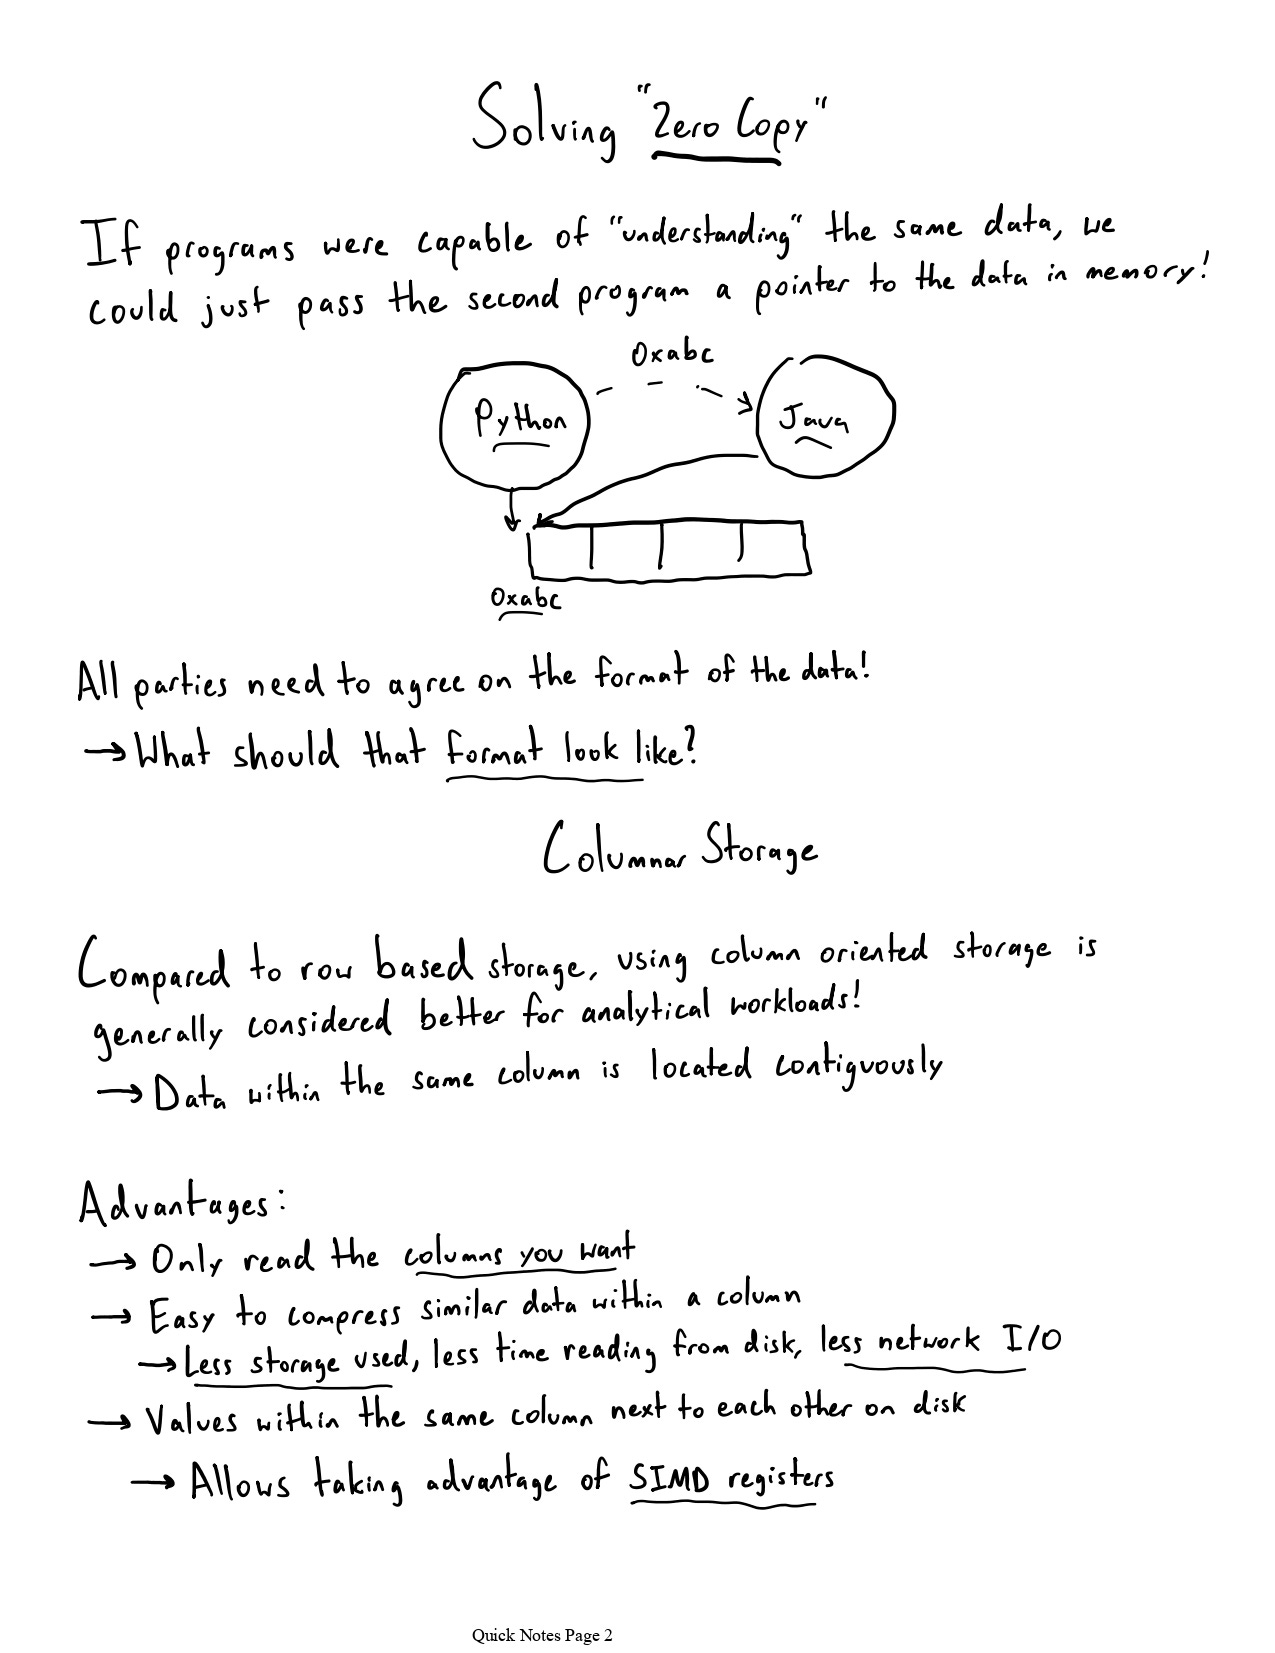 Solving "Zero Copy"
If programs were capable of "understanding" the same data, we
could just pass the second program a pointer to the data in memory!
0xabc
Python
Java
0xabc
All parties need to agree on the format of the data!
→ What should that format look like?
Columnar Storage
Compared to row based storage, using column oriented storage is
generally considered better for analytical workloads!
→ Data within the same column is located contiguously
Advantages:
→ Only read the columns you want
→ Easy to compress similar data within a column
→ Less storage used, less time reading from disk, less network I/O
→ Values within the same column next to each other on disk
→ Allows taking advantage of SIMD registers
Quick Notes Page 2